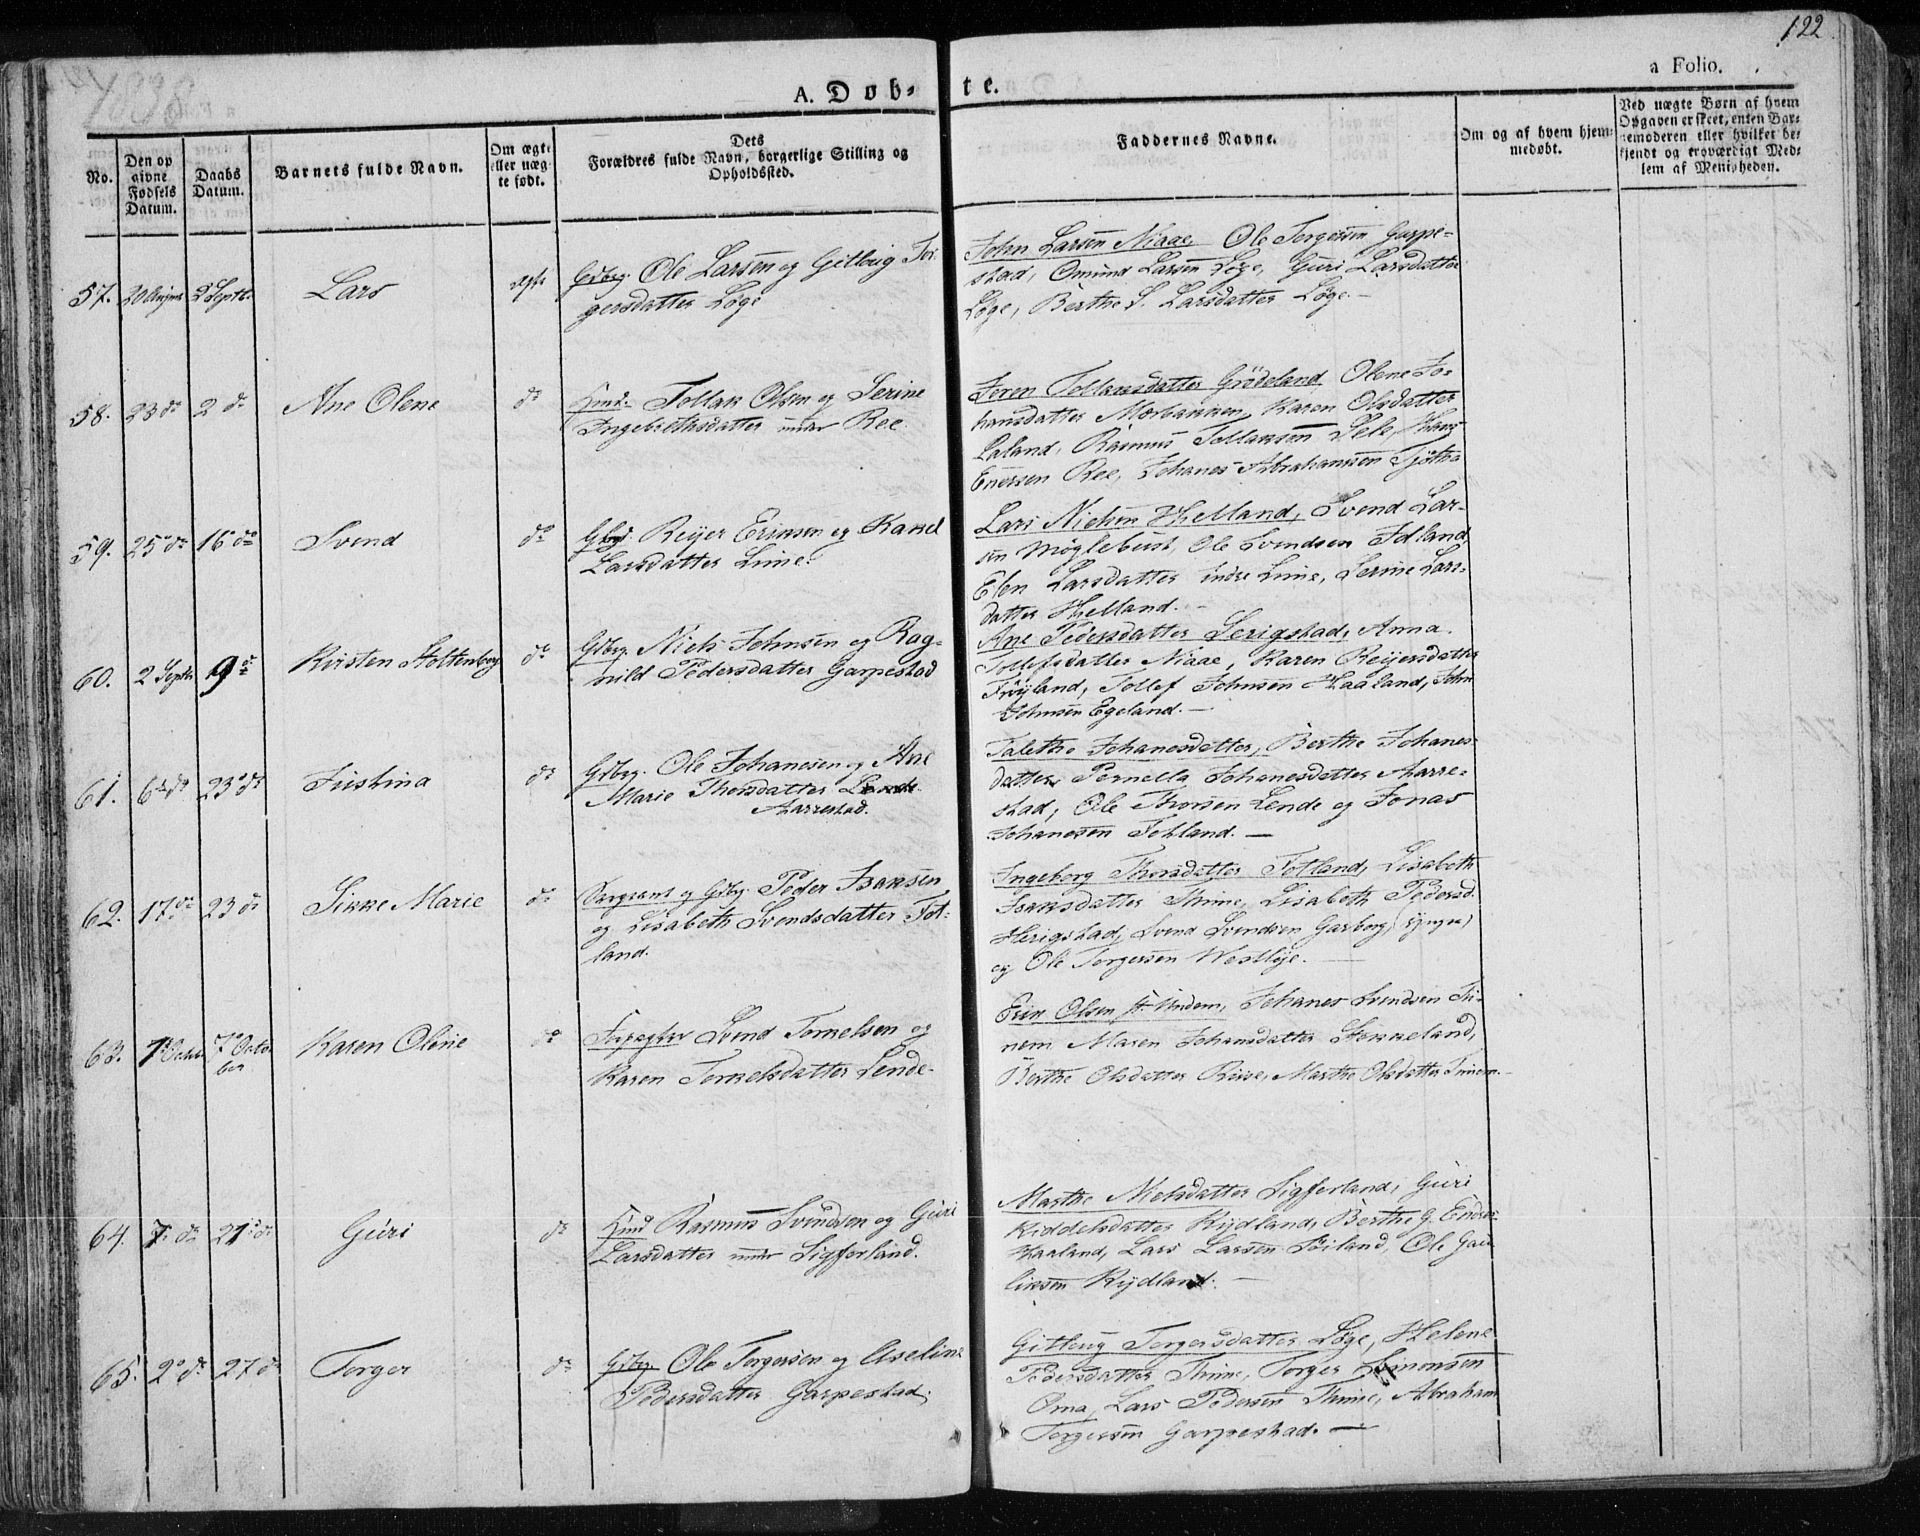 122
1838
a Folio.
A. Døb-
te.
No.
Den op
givne
Fødsels
Datum.
Daabs
Datum.
Barnets fulde Navn.
Om ægte
eller uæg-
te født.
Dets
Forældres fulde Navn, borgerlige Stilling og
Opholdssted.
Faddernes Navne.
Om og af hvem hjem-
medøbt.
Ved uægte Børn af hvem
Opgaven er skeet, enten Bar-
nemoderen eller hvilket be-
kjendt og troværdigt Med-
lem af Menigheden.
57. 20 August 2 Septb. Lars ægte Gdbrg. Ole Larsen og Gitlerig Tor-
gersdatter Løge
John Larsen Niaae, Ole Torgersen Garpe-
stad, Omund Larsen Løge, Guri Larsdatter
Løge, Berthe S. Larsdatter Løge.-
58. 23 do 2 do Ane Olene do Huusm. Tollak Olsen og Serine
Ingebrethsdatter under Ree.
Seren Tollaksdatter Grødeland, Olene Jo-
hansdatter Morbakken, Karen Olsdatter
Laland, Rasmus Tollaksen Sele, Hans
Enersen Ree, Johanes Abrahamsen Tjøtha
59. 25 do 16 do Svend do Gdbrg. Reijer Eriksen og Karel
Larsdatter Lime.
Lars Nielsen Helland, Svend Lar-
sen Møglebust, Ole Svendsen Folland
Elen Larsdatter indre Lime, Serine Lars-
datter Helland.-
60. 2 Septb. 9 do Kirsten Holtenberg do Gdbrg. Niels Johnsen og Rag-
nild Pedersdatter Garpestad
Ane Pedersdatter Serigstad, Anna
Tollefsdatter Niaae, Karen Reijersdatter
Frøyland, Tollef Johnsen Haaland, John
Johnsen Egeland.-
61. 6 do 23 do Justina do Gdbrg. Ole Johanesen og Ane
Marie Thorsdatter Lende
Aarrestad.
Talethe Johanesdatter, Berthe Johanes-
datter, Pernella Johanesdatter Aarre-
stad, Ole Thorsen Lende og Jonas
Johanesen Totland.-
62. 17 do 23 do Sikke Marie do Sergeant og Gdbrg. Peder Isaksen
og Lisabeth Svendsdatter Tot-
land.
Ingeborg Thorsdatter Totland, Lisabeth
Isaksdatter Thime, Lisabeth Pedersd.
Herigstad, Svend Svendsen Garborg, (yngre)
og Ole Torgersen Westlye.
63. 1 Octob. 7 Octo-
ber Karen Oline do Forpagter Svend Tornelsen og
Karen Tornelsdatter Lende-
Erik Olsen St. Undem, Johanes Svendsen Ti-
nem, Maren Johansdatter Stokkeland,
Berthe Olsdatter Riise, Marthe Olsdatter Tinem.-
64. 7 do 21 do Guri do Huusm. Rasmus Svendsen og Guri
Larsdatter under Sigferland.
Marthe Nielsdatter Sigferland, Guri
Kiddelsdatter Rydland, Berthe G. Endres.
Haaland, Lars Larsen Søiland, Ole Gau-
liksen Rydland.-
65. 2 do 27 do Torger do Gdbrg. Ole Torgersen og Aseline
Pedersdatter Garpestad.
Gitleug Torgersdatter Løge, Helene
Pedersdatter Thime, Torger Simonsen
Oma, Lars Pedersen Thime, Abraham
Torgersen Garpestad.-